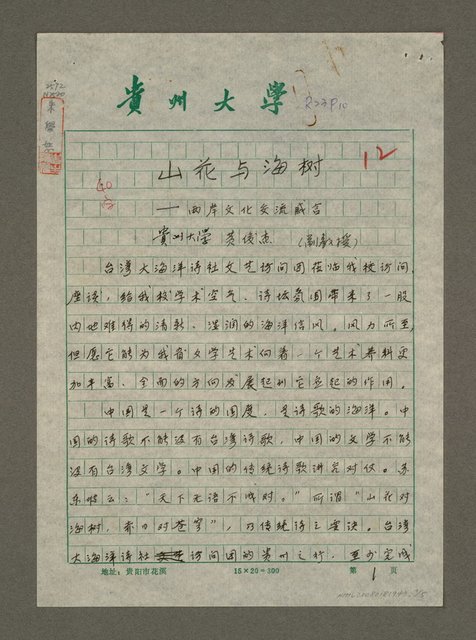 貴州大學
R23P10
12
山花与海树
——两岸文化交流感言
贵州大学 黄俊杰 (副教授)
台湾大海洋诗社文艺访问团莅临我校访问
座谈，给我校学术空气、诗坛氛围带来了一股
内地难得的清新、湿润的海洋信风。风力所至，
但愿它能为我省文学艺术向着一个艺术养料更
加丰富、全面的方向发展起到它应起的作用。
中国是一个诗的国度，是诗歌的海洋。中
国的诗歌不能没有台湾诗歌，中国的文学不能
没有台湾文学。中国的传统诗歌讲究对仗。苏
东坡云：“天下无语不成对。”所谓“山花对
海树，赤日对苍穹”，乃传统诗之要诀。台湾
大海洋诗社访问团的贵州之行，至少完成
地址：贵阳市花溪
15×20=300
第 1 页